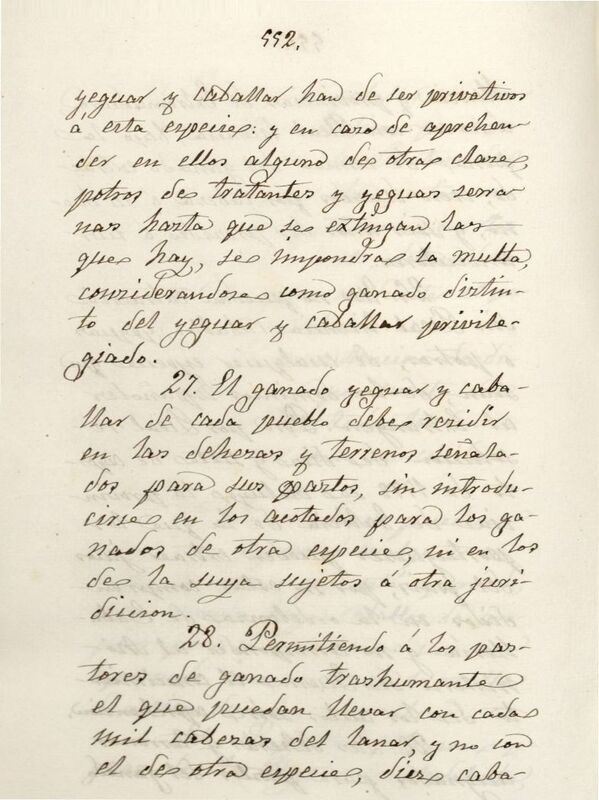 552.
yeguar y caballar han de ser privativos
á esta especie: y en caso de aprehen-
der en ellos alguno de otra clase,
potros de tratantes y yeguas serra-
nas hasta que se extingan las
que hay, se impondrá la multa,
considerandose como ganado distin-
to del yeguar y caballar privile-
giado.
27. El ganado yeguar y caba-
llar de cada pueblo debe residir
en las dehesas y terrenos señala-
dos para sus pastos, sin introdu-
cirse en los acotados para los ga-
nados de otra especie, ni en los
de la suya sujetos á otra juris-
diccion.
28. Permitiendo á los pas-
tores de ganado trashumante
el que puedan llevar con cada
mil cabezas del lanar, y no con
el de otra especie, diez caba-